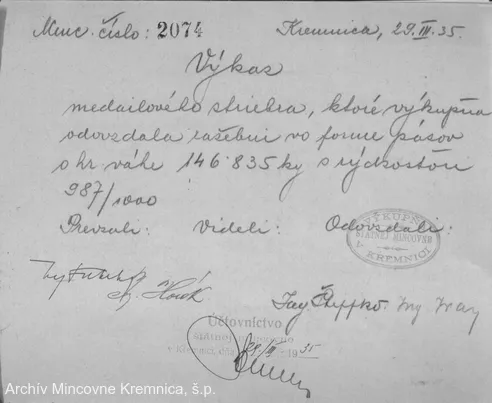 Minc. číslo: 2074
Kremnica, 29.III.35.
Výkaz
medailového striebra, ktoré výkupňa
odovzdala razebni vo forme pásov
o hr. váhe 146.835 kg s rýdzosťou
987/1000
Prevzali: Videli: Odovzdali:
VÝKUPŇA STÁTNEJ MINCOVNE V KREMNICI
Horák
Účtovníctvo
štátnej mincovne
v Kremnici dňa 29/III 1935
Archív Mincovne Kremnica, š.p.